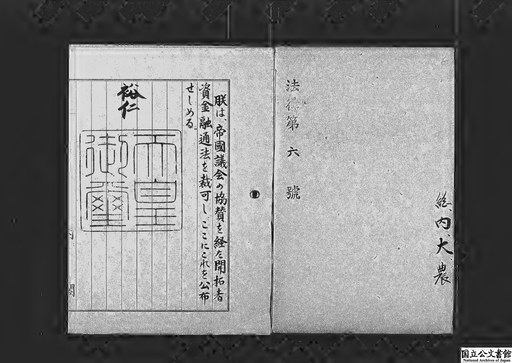 法律第六號
総、内、大、農
朕は、帝國議会の協賛を経た開拓者
資金融通法を裁可し、ここにこれを公布
せしめる。
裕仁
天皇
御璽
国立公文書館
National Archives of Japan